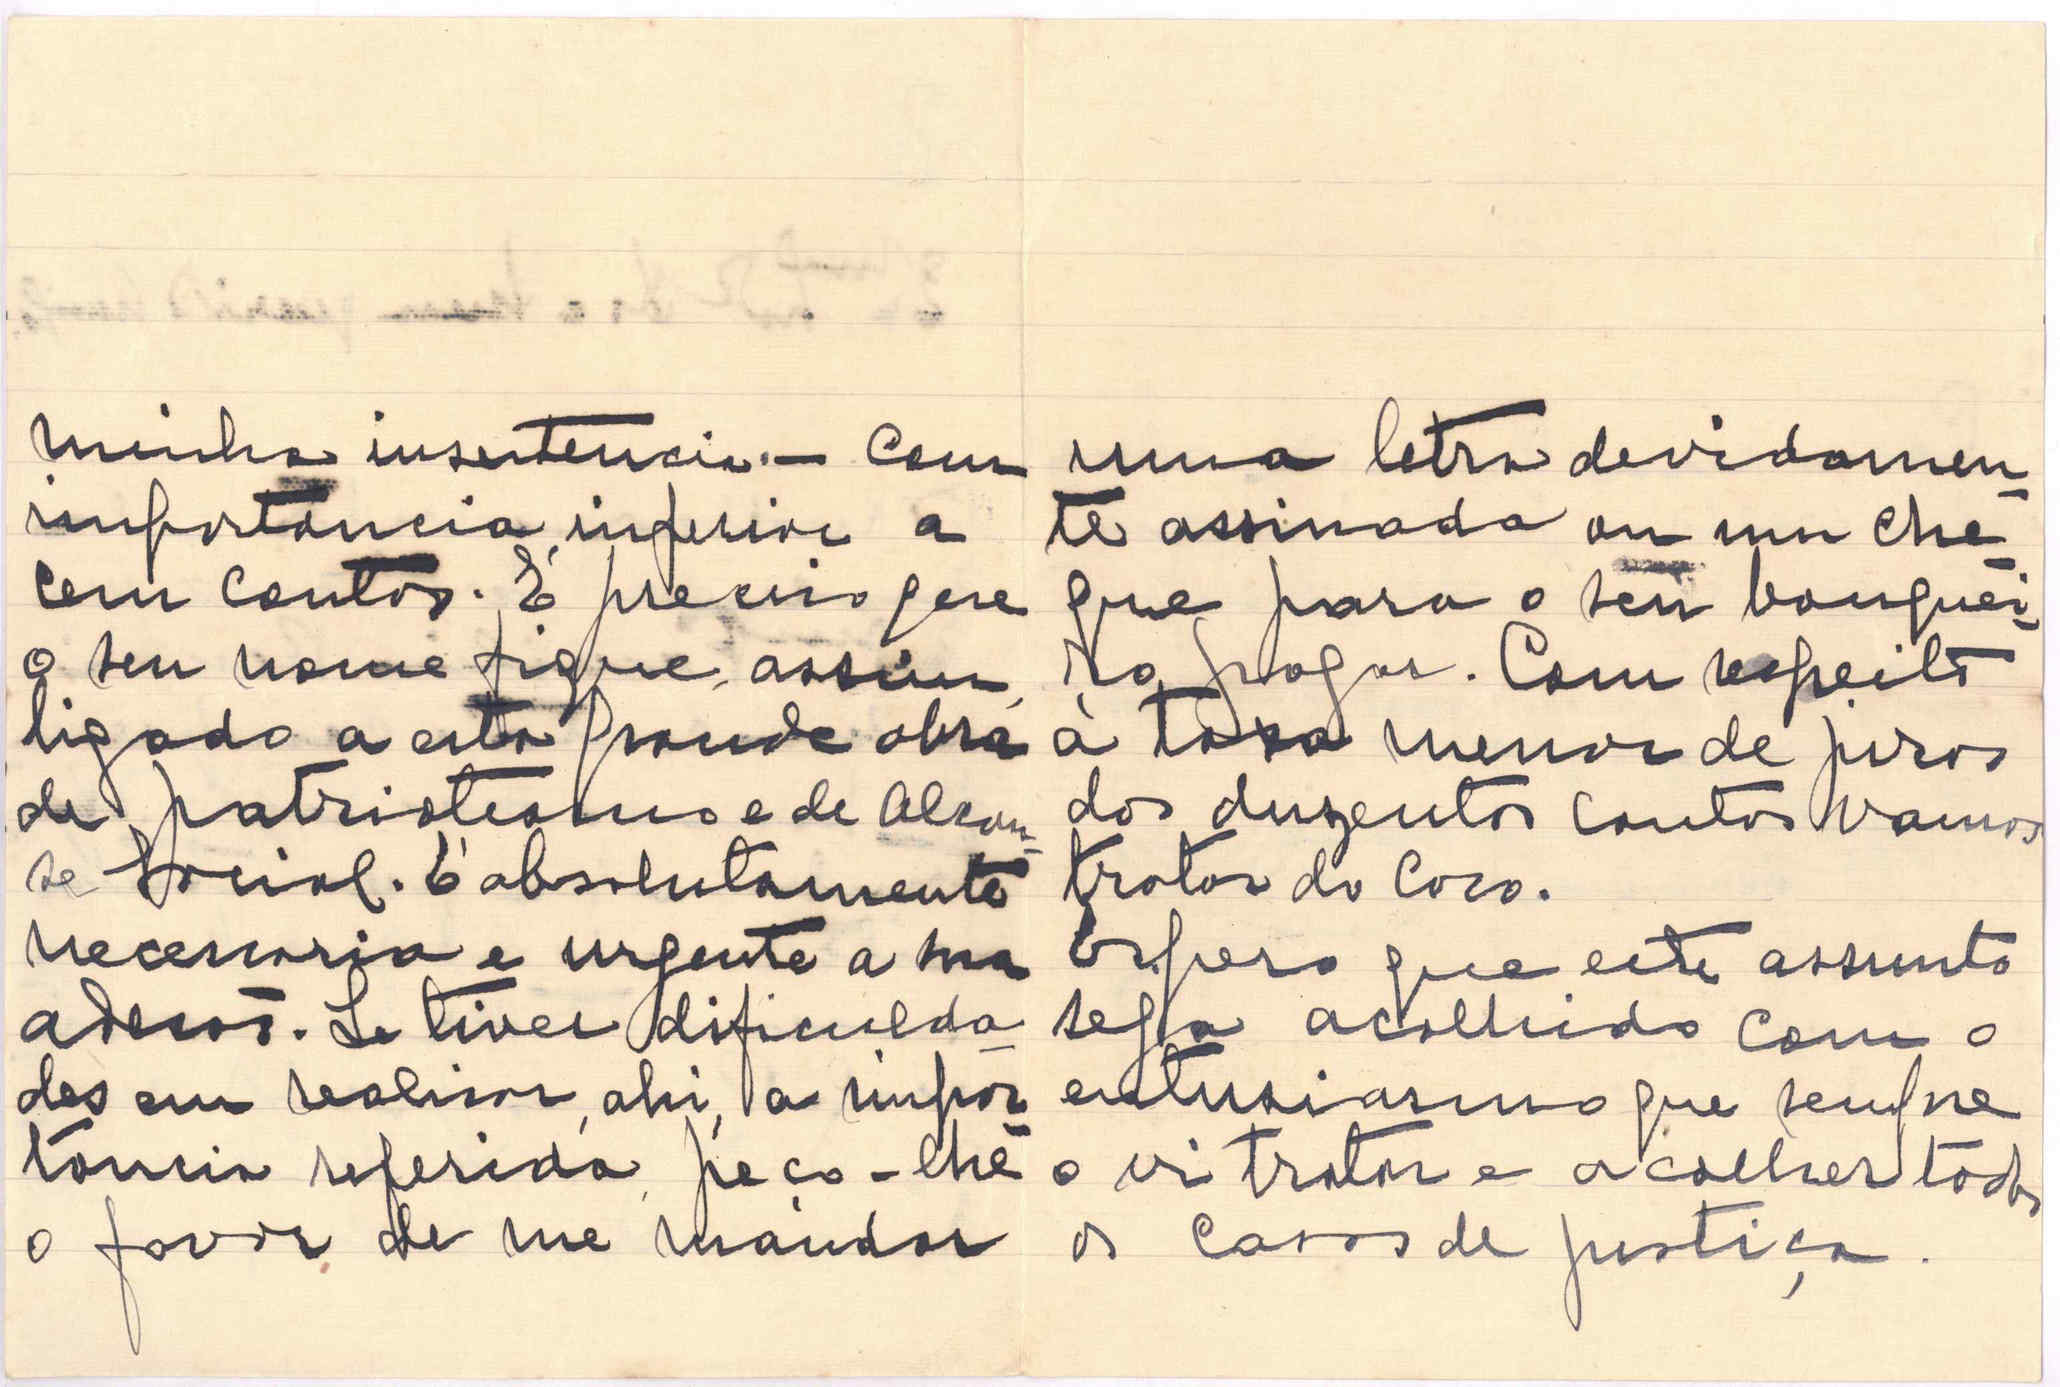 minha insistencia. — Com
importancia inferior a
cem contos. É preciso que
o seu nome fique, assim,
ligado a esta grande obra
de patriotismo e de Alcan-
se Social. É absolutamente
necessaria e urgente a sua
adesão. Se tiver dificulda-
des em realisar, ahi, a impor
tancia referida, peço-lhe
o favor de me mandar
uma letra devidamen-
te assinada ou um che-
que para o seu banquei-
ro pagar. Com respeito
à taxa menor de juros
dos duzentos contos vamos
tratar do Caso.
Espero que este assunto
seja acolhido com o
entusiasmo que sempre
o vi tratar e acolher todos
os casos de justiça.